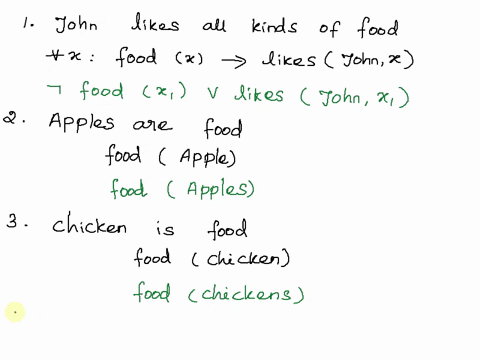 1. John likes all kinds of food
∀x : food (x) → likes (John, x)
¬ food (x₁) ∨ likes (John, x₁)
2. Apples are food
food (Apple)
food (Apples)
3. chicken is food
food (chicken)
food (chickens)